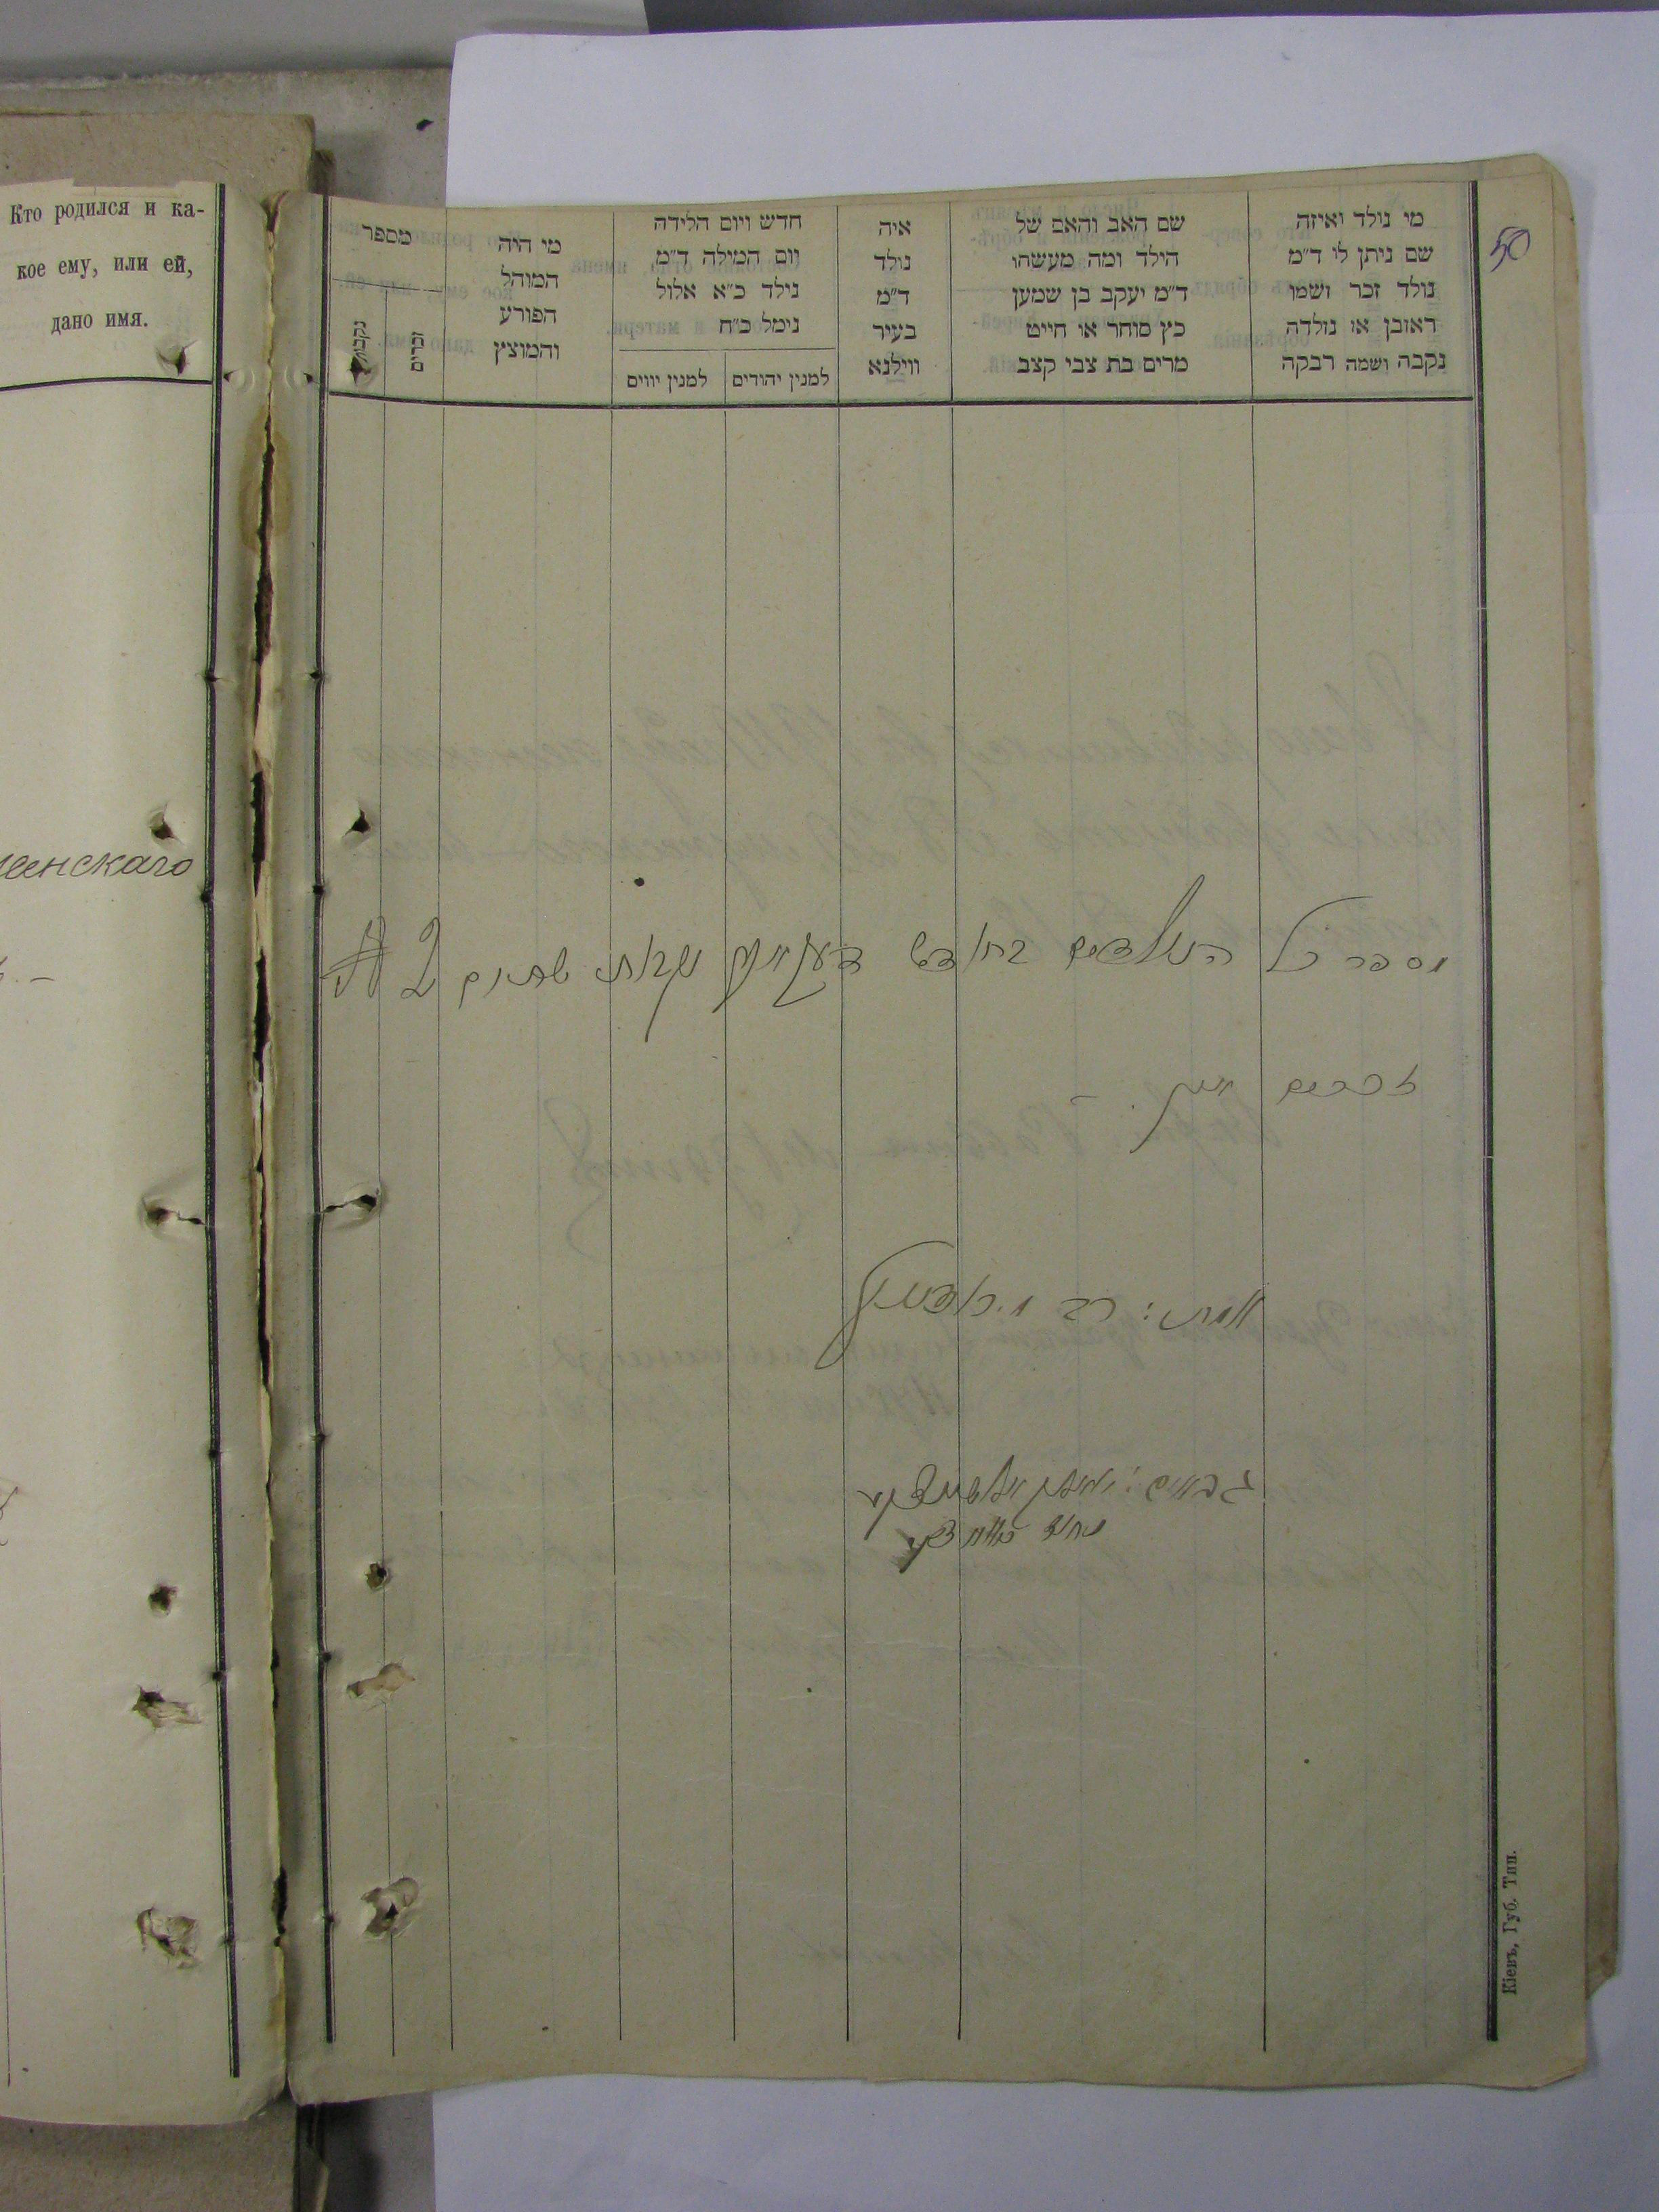 Кто родился и ка-
кое ему, или ей,
дано имя.
50
מי נולד ואיזה
שם ניתן לו ד״מ
נולד זכר ושמו
ראובן או נולדה
נקבה ושמה רבקה
שם האב והאם של
הילד ומה מעשהו
ד״מ יעקב בן שמען
כץ סוחר או חייט
מרים בת צבי קצב
איה
נולד
ד״מ
בעיר
ווילנא
חדש ויום הלידה
ויום המילה ד״מ
נילד כ״א אלול
נימל כ״ח
למנין יהודים
למנין יווים
מי היה
המוהל
הפורע
והמוצץ
מספר
זכרים
נקבות
מספר כל הנולדים בחודש נקבות שתים 2
זכרים אין. –
גבאים:
женскаго
Кіевъ, Губ. Тип.